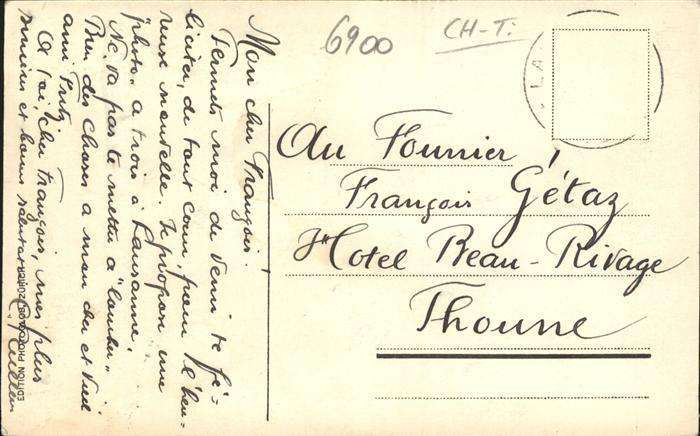 6900
CH-T:
LA
Mon cher François!
Permets moi de venir te fé-
liciter, de tout cœur, pour l'heu-
reuse nouvelle. Je propose une
"photo" à trois à Lausanne!
Ne va pas te mettre à "tomber"
Bien des choses à mon cher et vieil
ami Fritz.
A toi, cher François, mes plus
sincères et bonnes salutations
EDITION PHOTOGLOB ZÜRICH
Au Fourrier
François Gétaz
Hotel Beau-Rivage
Thoune